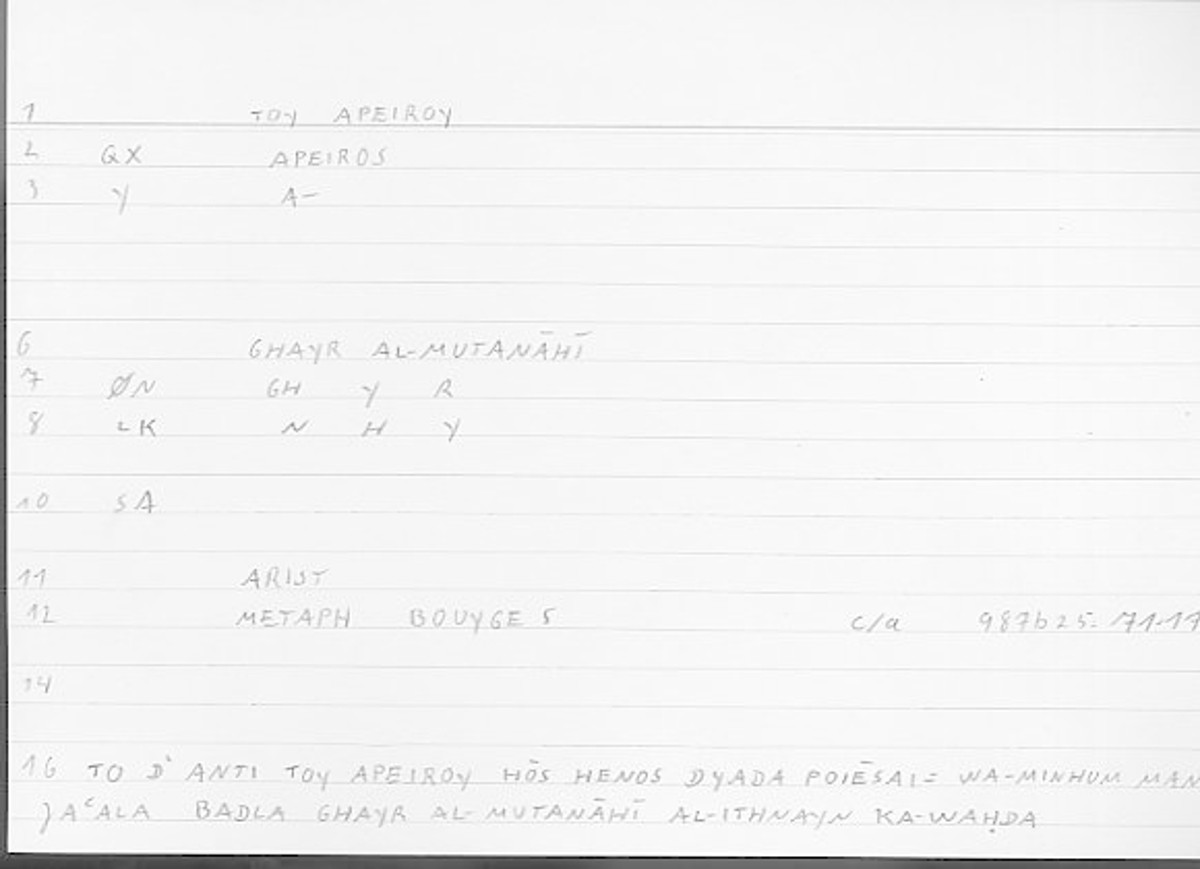 1 TOY APEIROY
2 QX APEIROS
3 Y A-
6 GHAYR AL-MUTANĀHĪ
7 ØN GH Y R
8 LK N H Y
10 SA
11 ARIST
12 METAPH BOUYGES c/a 987b25= 71.11
14
16 TO D' ANTI TOY APEIROY HŌS HENOS DYADA POIĒSAI= WA-MINHUM MAN
JAʿALA BADLA GHAYR AL-MUTANĀHĪ AL-ITHNAYN KA-WAḤDA